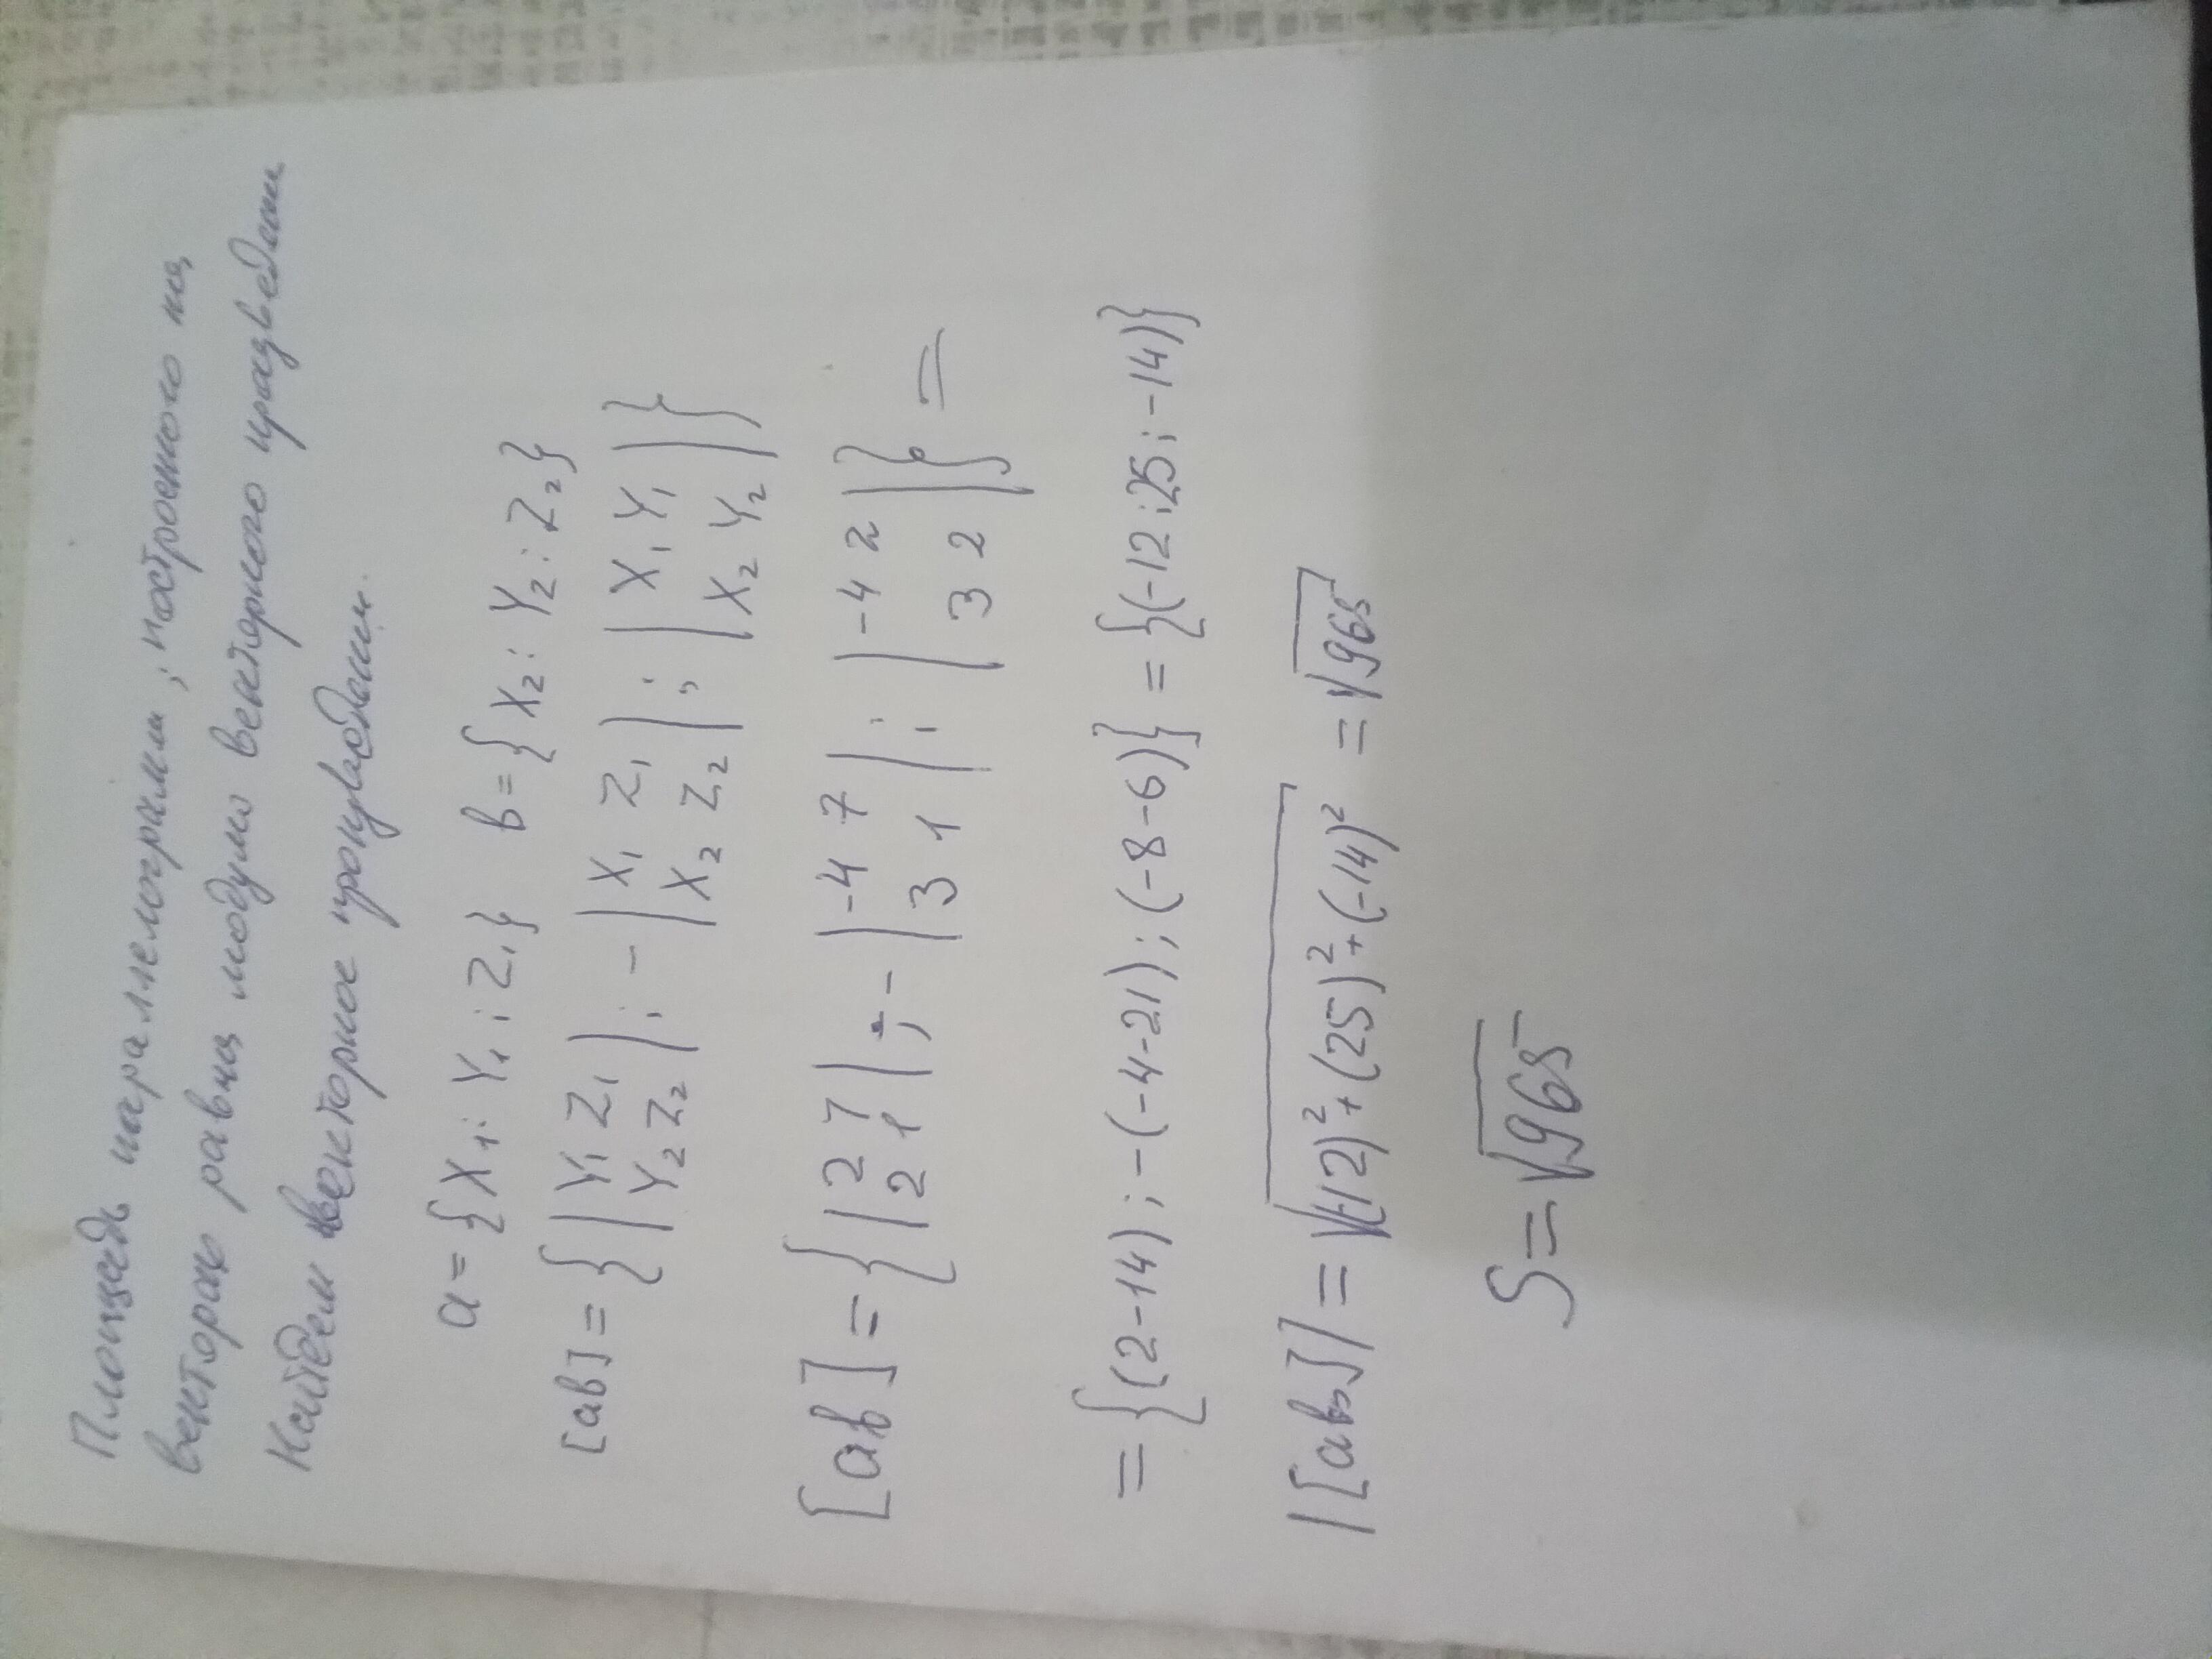 Площадь параллелограмм, построенного на
векторах равна модулю векторного
Найдем векторное
a = {X₁; Y₁; Z₁} b = {X₂; Y₂; Z₂}
[ab] = {|Y₁ Z₁|; -|X₁ Z₁|; |X₁ Y₁|}
|Y₂ Z₂| |X₂ Z₂| |X₂ Y₂|
[ab] = {|2 7|; -|-4 7|; |-4 2|} =
|2 1| |3 1| |3 2|
= {(2-14); -(-4-21); (-8-6)} = {(-12; 25; -14)}
|[ab]| = √(-12)² + (25)² + (-14)² = √965
S = √965